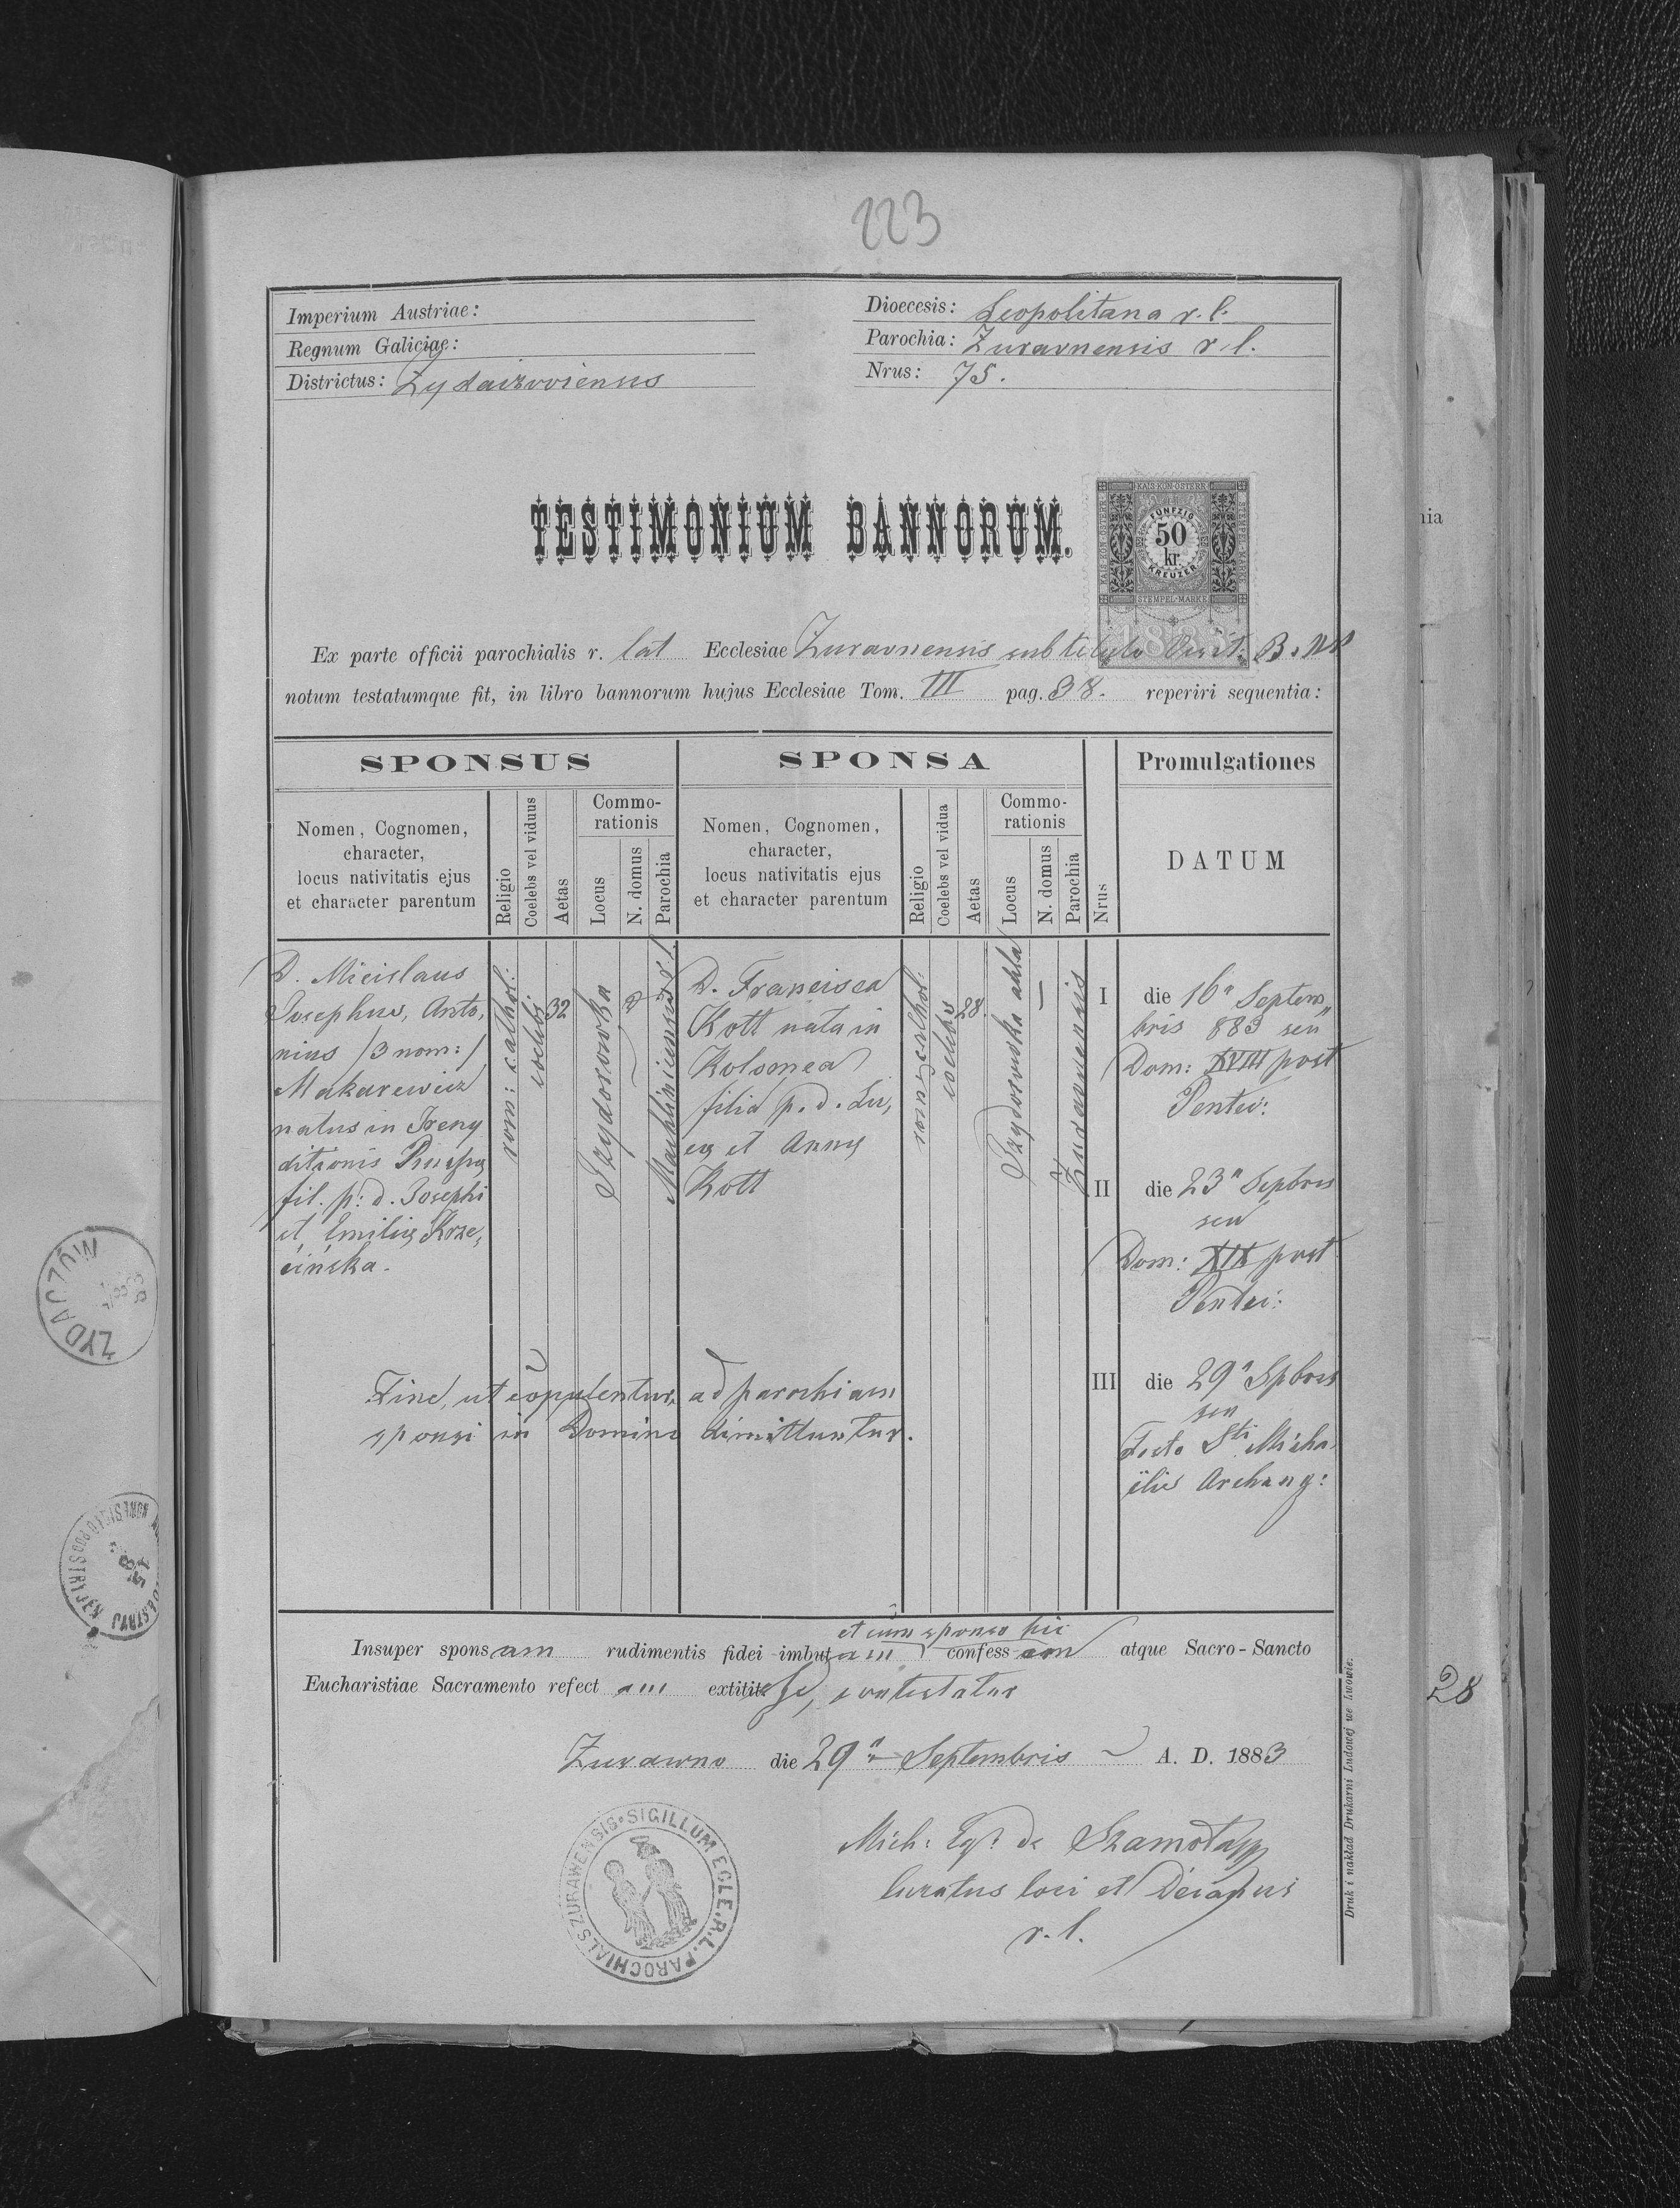 223
Imperium Austriae:
Regnum Galiciae:
Districtus: Żydaczoviensis
Dioecesis: Leopolitana r. l.
Parochia: Żuravnensis r. l.
Nrus: 75.
TESTIMONIUM BANNORUM.
KAIS. KÖN. ÖSTERR.
FÜNFZIG
50
kr.
KREUZER
STEMPEL-MARKE
1883
Ex parte officii parochialis r. lat Ecclesiae Żuravnensis sub titulo Visit. B. M
notum testatumque fit, in libro bannorum hujus Ecclesiae Tom. III pag. 38. reperiri sequentia:
SPONSUS
SPONSA
Promulgationes
Nomen, Cognomen,
character,
locus nativitatis ejus
et character parentum
Religio
Coelebs vel viduus
Aetas
Commo-
rationis
Locus
N. domus
Parochia
Nomen, Cognomen,
character,
locus nativitatis ejus
et character parentum
Religio
Coelebs vel vidua
Aetas
Commo-
rationis
Locus
N. domus
Parochia
Nrus
DATUM
D. Miecislaus
Josephus, Anto,
nius /3 nom:/
Makarewicz
natus in
ditionis
fil. p: d. Josephi
et Emiliae Krze,
cińska.
rom: cathol:
coelebs
32
r. l.
D. Francisca
Kott nata in
Kolomea
filia p. d. Lu,
cae et Annae
Kott
rom: cathol:
coelebs
28.
—
Żuravnensis
I
die 16a Septem„
bris 883 seu
Dom: XVIII post
Pentec:
II
die 23a Septbris
seu
Dom: XIX post
Pentec:
III
die 29a Sptbris
seu
Festo Sti Micha
ëlis Archang:
Fine, ut copulentur, ad parochiam
sponsi in Domino dimittuntur.
et cum sponso hic
Insuper sponsam rudimentis fidei imbutam confessam atque Sacro-Sancto
Eucharistiae Sacramento refectam extitisse, contestatur
Żurawno die 29a Septembris A. D. 1883
SIGILLUM ECLE. R. L. PAROCHIALS ZURAWENSIS
Mich: de Szamota
Curatus loci et Decanus
r. l.
Druk i nakład Drukarni Ludowej we Lwowie.
ŻYDACZÓW
STRYJ
nia
28